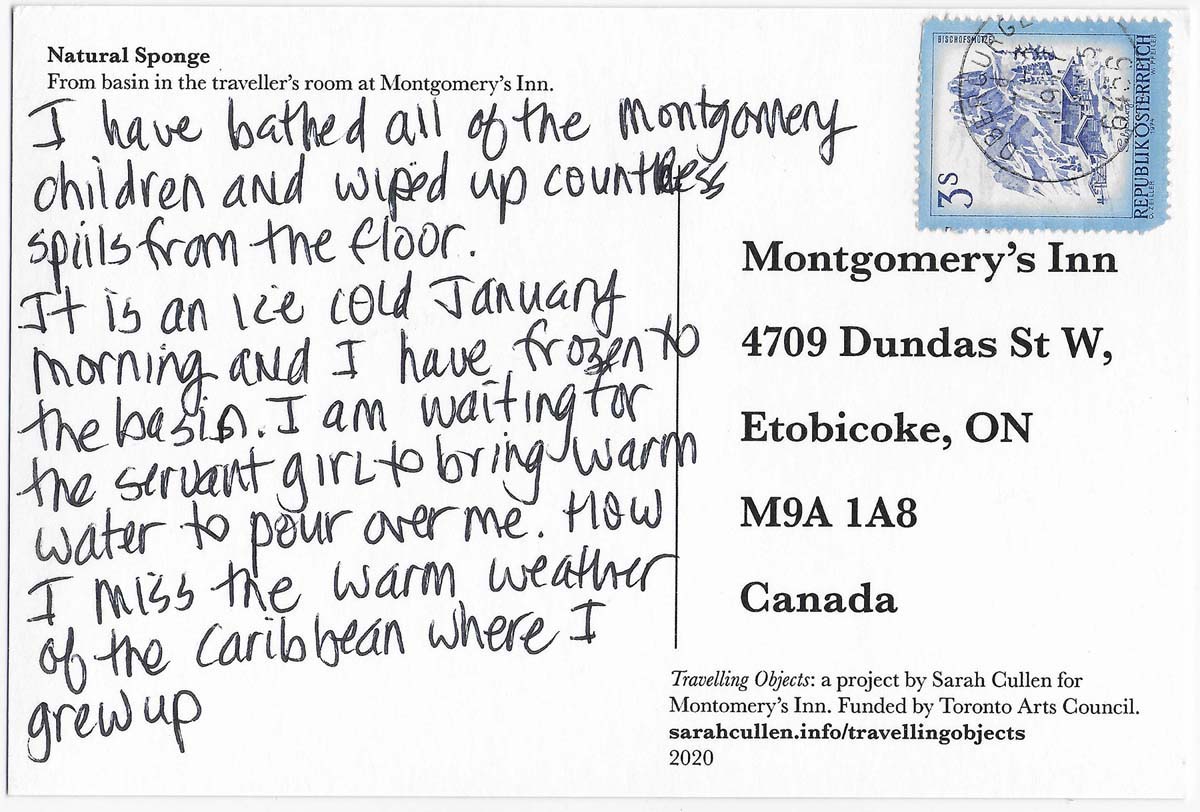 Natural Sponge
From basin in the traveller's room at Montgomery's Inn.
I have bathed all of the Montgomery
children and wiped up countless
spills from the floor.
It is an ice cold January
morning and I have frozen to
the basin. I am waiting for
the servant girl to bring warm
water to pour over me. How
I miss the warm weather
of the Caribbean where I
grew up
BISCHOFSMÜTZE
3S
REPUBLIK ÖSTERREICH
1974
O. ZEILLER
W. PFEILER
Montgomery's Inn
4709 Dundas St W,
Etobicoke, ON
M9A 1A8
Canada
Travelling Objects: a project by Sarah Cullen for
Montomery's Inn. Funded by Toronto Arts Council.
sarahcullen.info/travellingobjects
2020